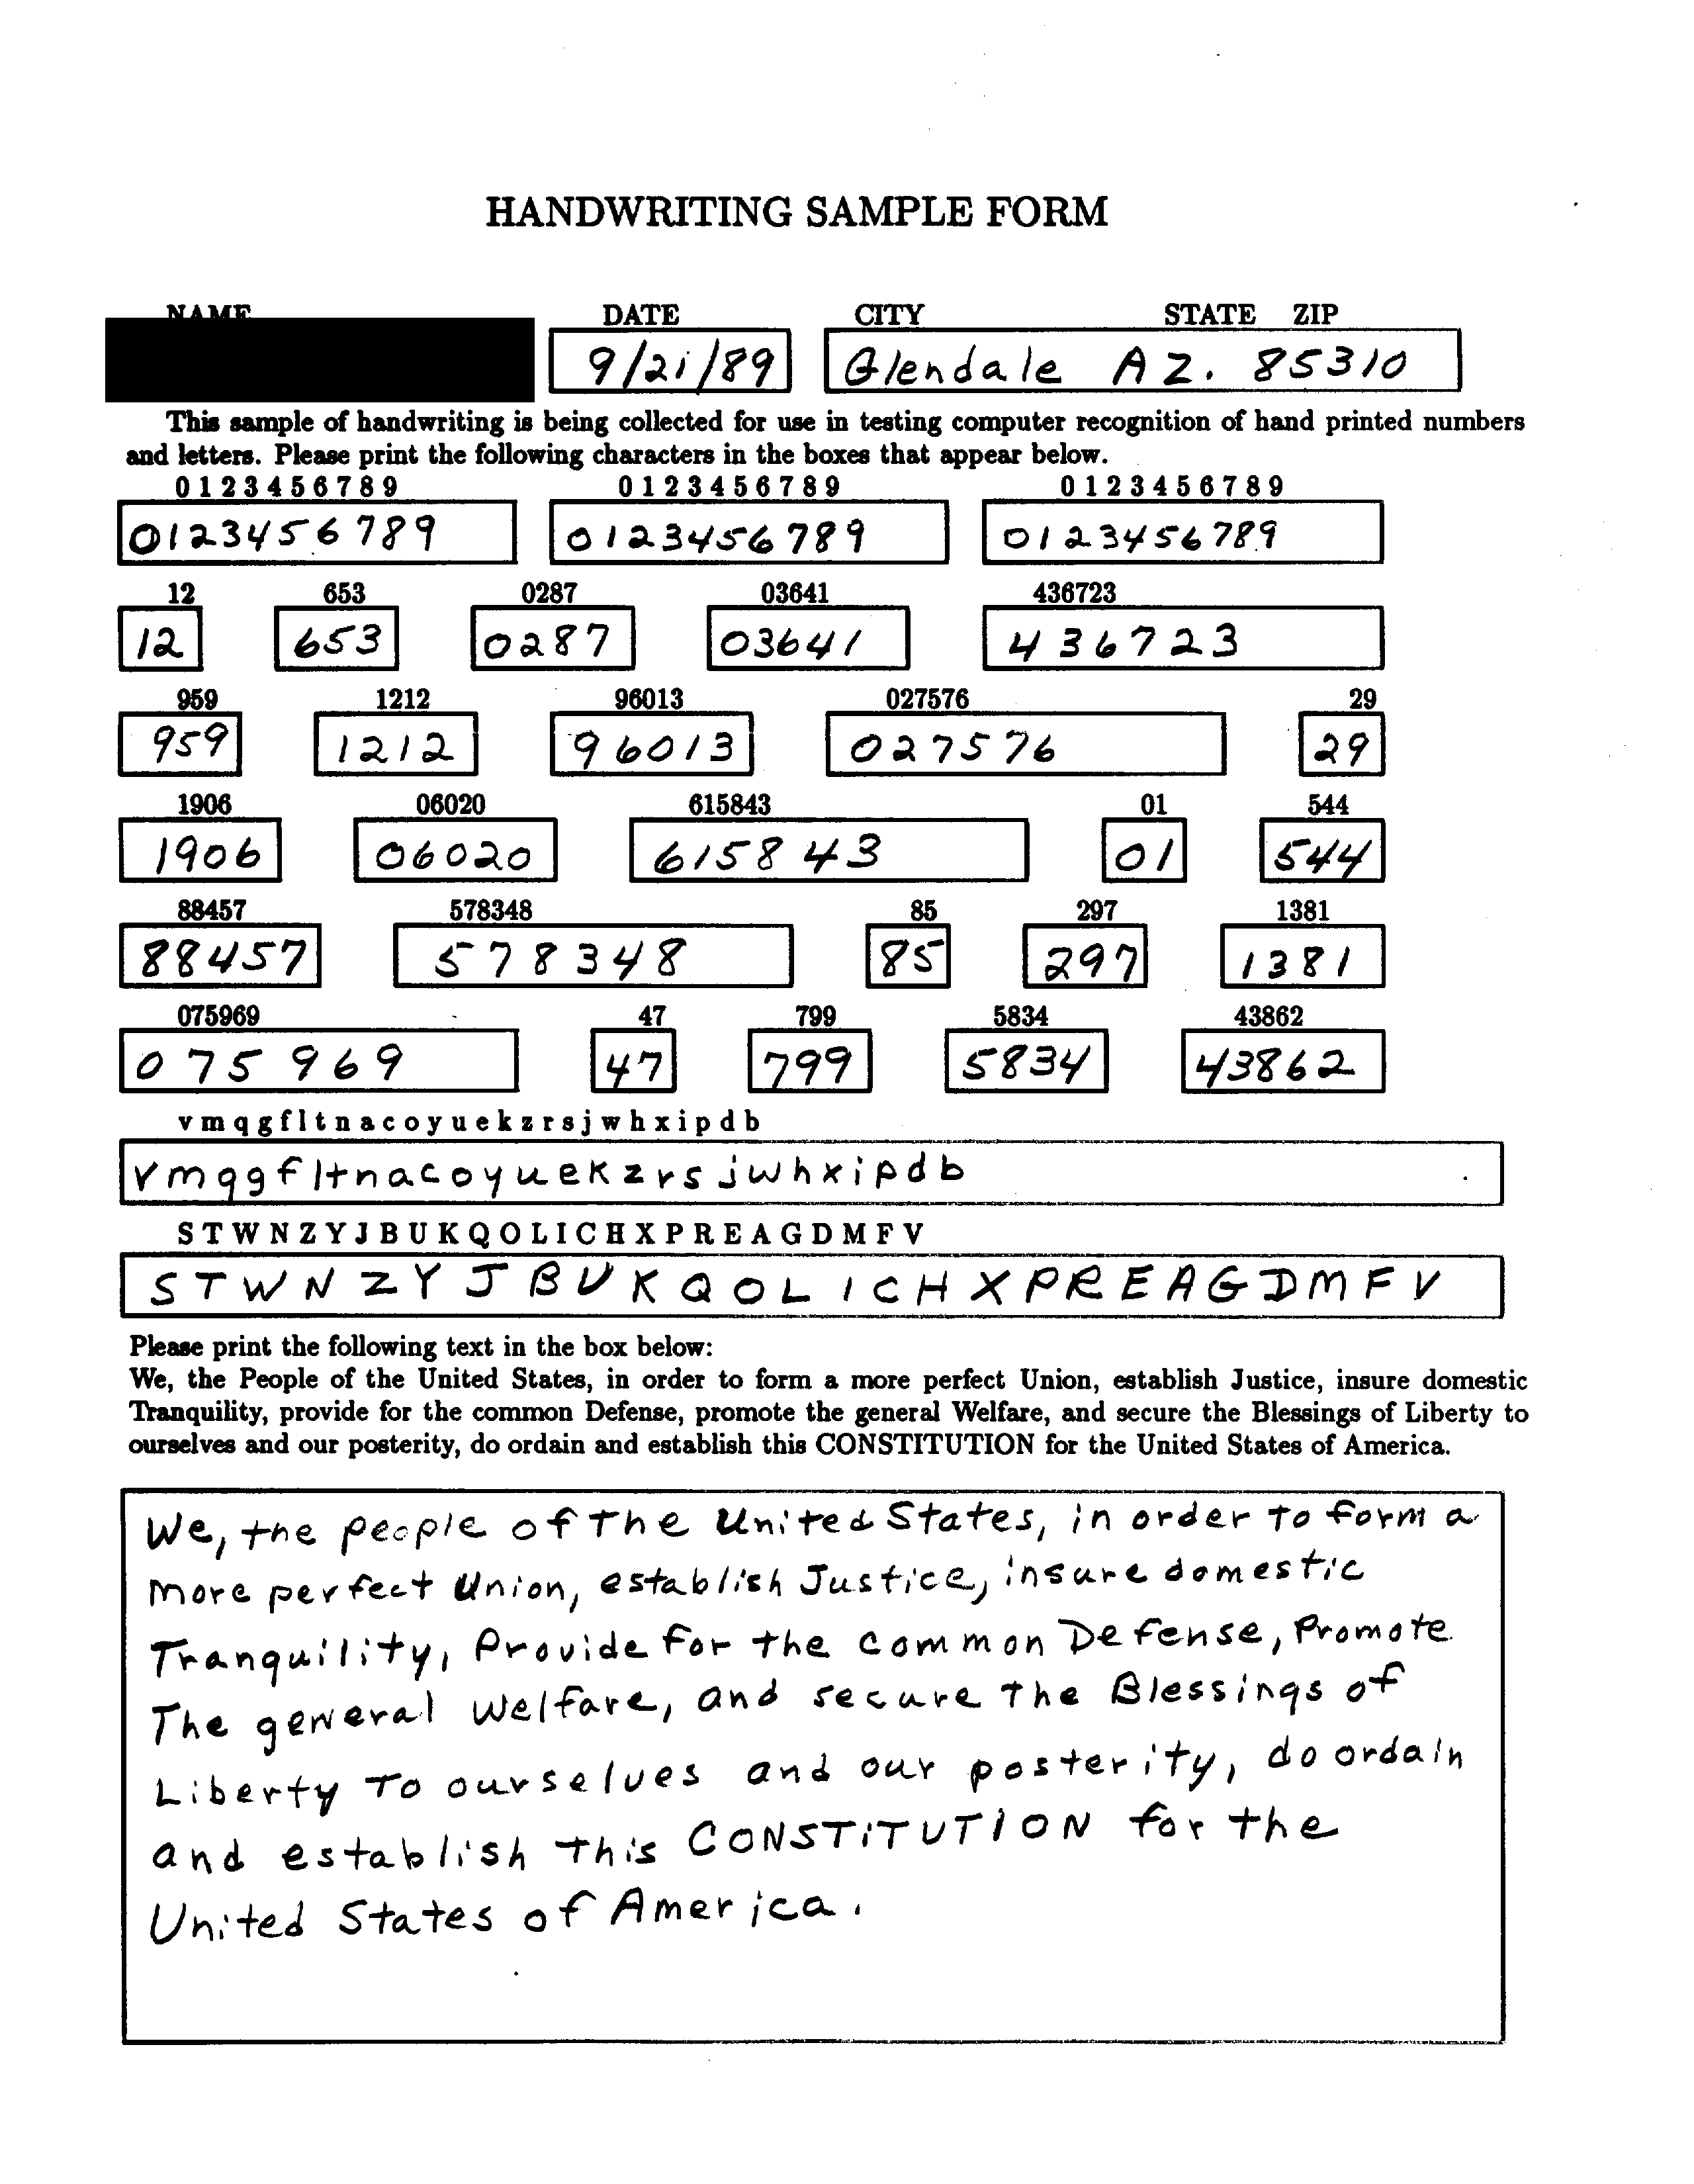 HANDWRITING SAMPLE FORM
NAME DATE CITY STATE ZIP
9/21/89 Glendale AZ. 85310
This sample of handwriting is being collected for use in testing computer recognition of hand printed numbers
and letters. Please print the following characters in the boxes that appear below.
0 1 2 3 4 5 6 7 8 9 0 1 2 3 4 5 6 7 8 9 0 1 2 3 4 5 6 7 8 9
0123456789 0123456789 0123456789
12 653 0287 03641 436723
12 653 0287 03641 436723
959 1212 96013 027576 29
959 1212 96013 027576 29
1906 06020 615843 01 544
1906 06020 615843 01 544
88457 578348 85 297 1381
88457 578348 85 297 1381
075969 47 799 5834 43862
075969 47 799 5834 43862
v m q g f l t n a c o y u e k z r s j w h x i p d b
v m q g f l t n a c o y u e k z r s j w h x i p d b
S T W N Z Y J B U K Q O L I C H X P R E A G D M F V
S T W N Z Y J B U K Q O L I C H X P R E A G D M F V
Please print the following text in the box below:
We, the People of the United States, in order to form a more perfect Union, establish Justice, insure domestic
Tranquility, provide for the common Defense, promote the general Welfare, and secure the Blessings of Liberty to
ourselves and our posterity, do ordain and establish this CONSTITUTION for the United States of America.
We, the people of The United States, in order To form a
more perfect Union, establish Justice, insure domestic
Tranquility, Provide for the common Defense, Promote
The general Welfare, and secure The Blessings of
Liberty To ourselves and our posterity, do ordain
and establish this CONSTiTUTION for the
United States of America.